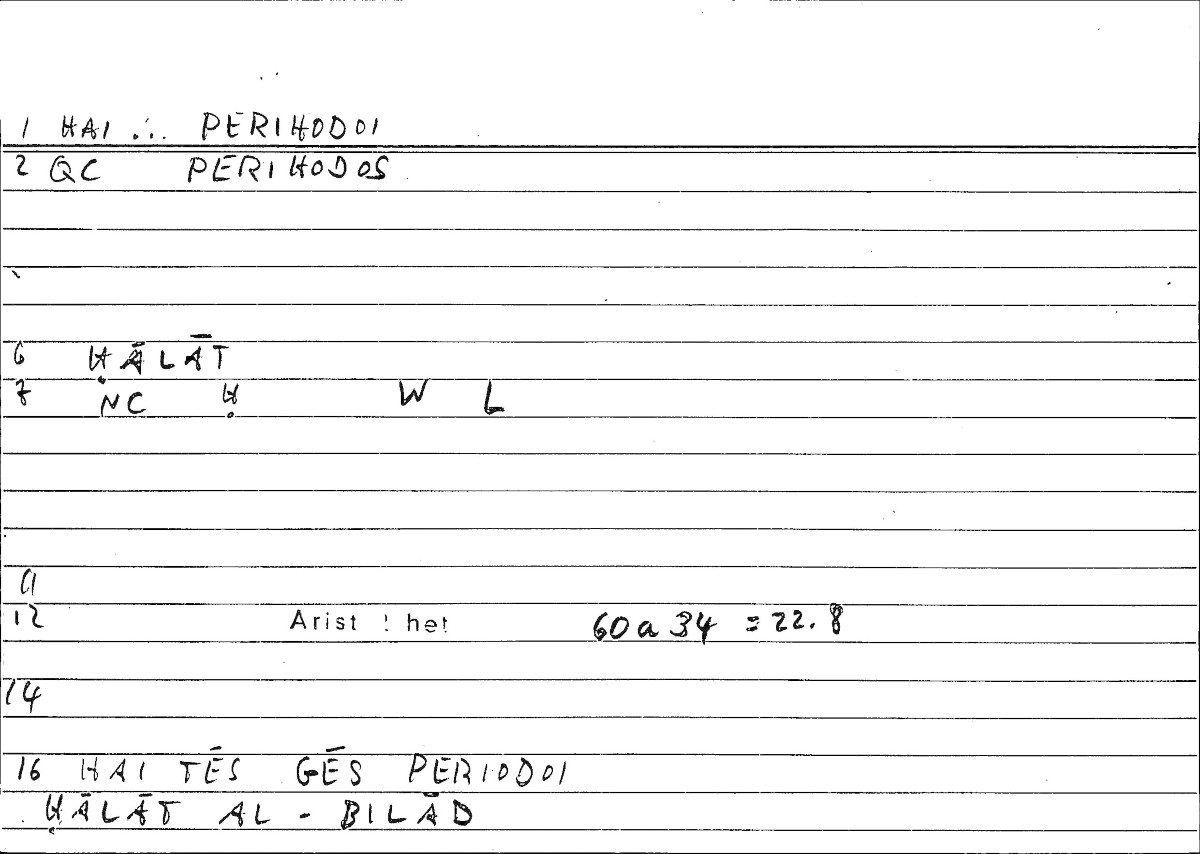 1 HAI ∴ PERIHODOI
2 QC PERIHODOS
6 ḤĀLĀT
7 NC Ḥ W L
11
12 Arist : het 60a34 = 22.8
14
16 HAI TĒS GĒS PERIODOI
ḤĀLĀT AL - BILĀD